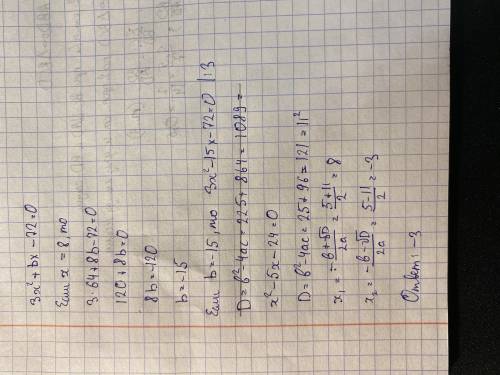 3x² + bx - 72 = 0
Если x = 8, то
3·64 + 8b - 72 = 0
120 + 8b = 0
8b = -120
b = -15
Если b = -15, то 3x² - 15x - 72 = 0 |:3
D = b² - 4ac = 225 + 864 = 1089 =
x² - 5x - 24 = 0
D = b² - 4ac = 25 + 96 = 121 = 11²
x₁ = (-b + √D)/2a = (5 + 11)/2 = 8
x₂ = (-b - √D)/2a = (5 - 11)/2 = -3
Ответ: -3